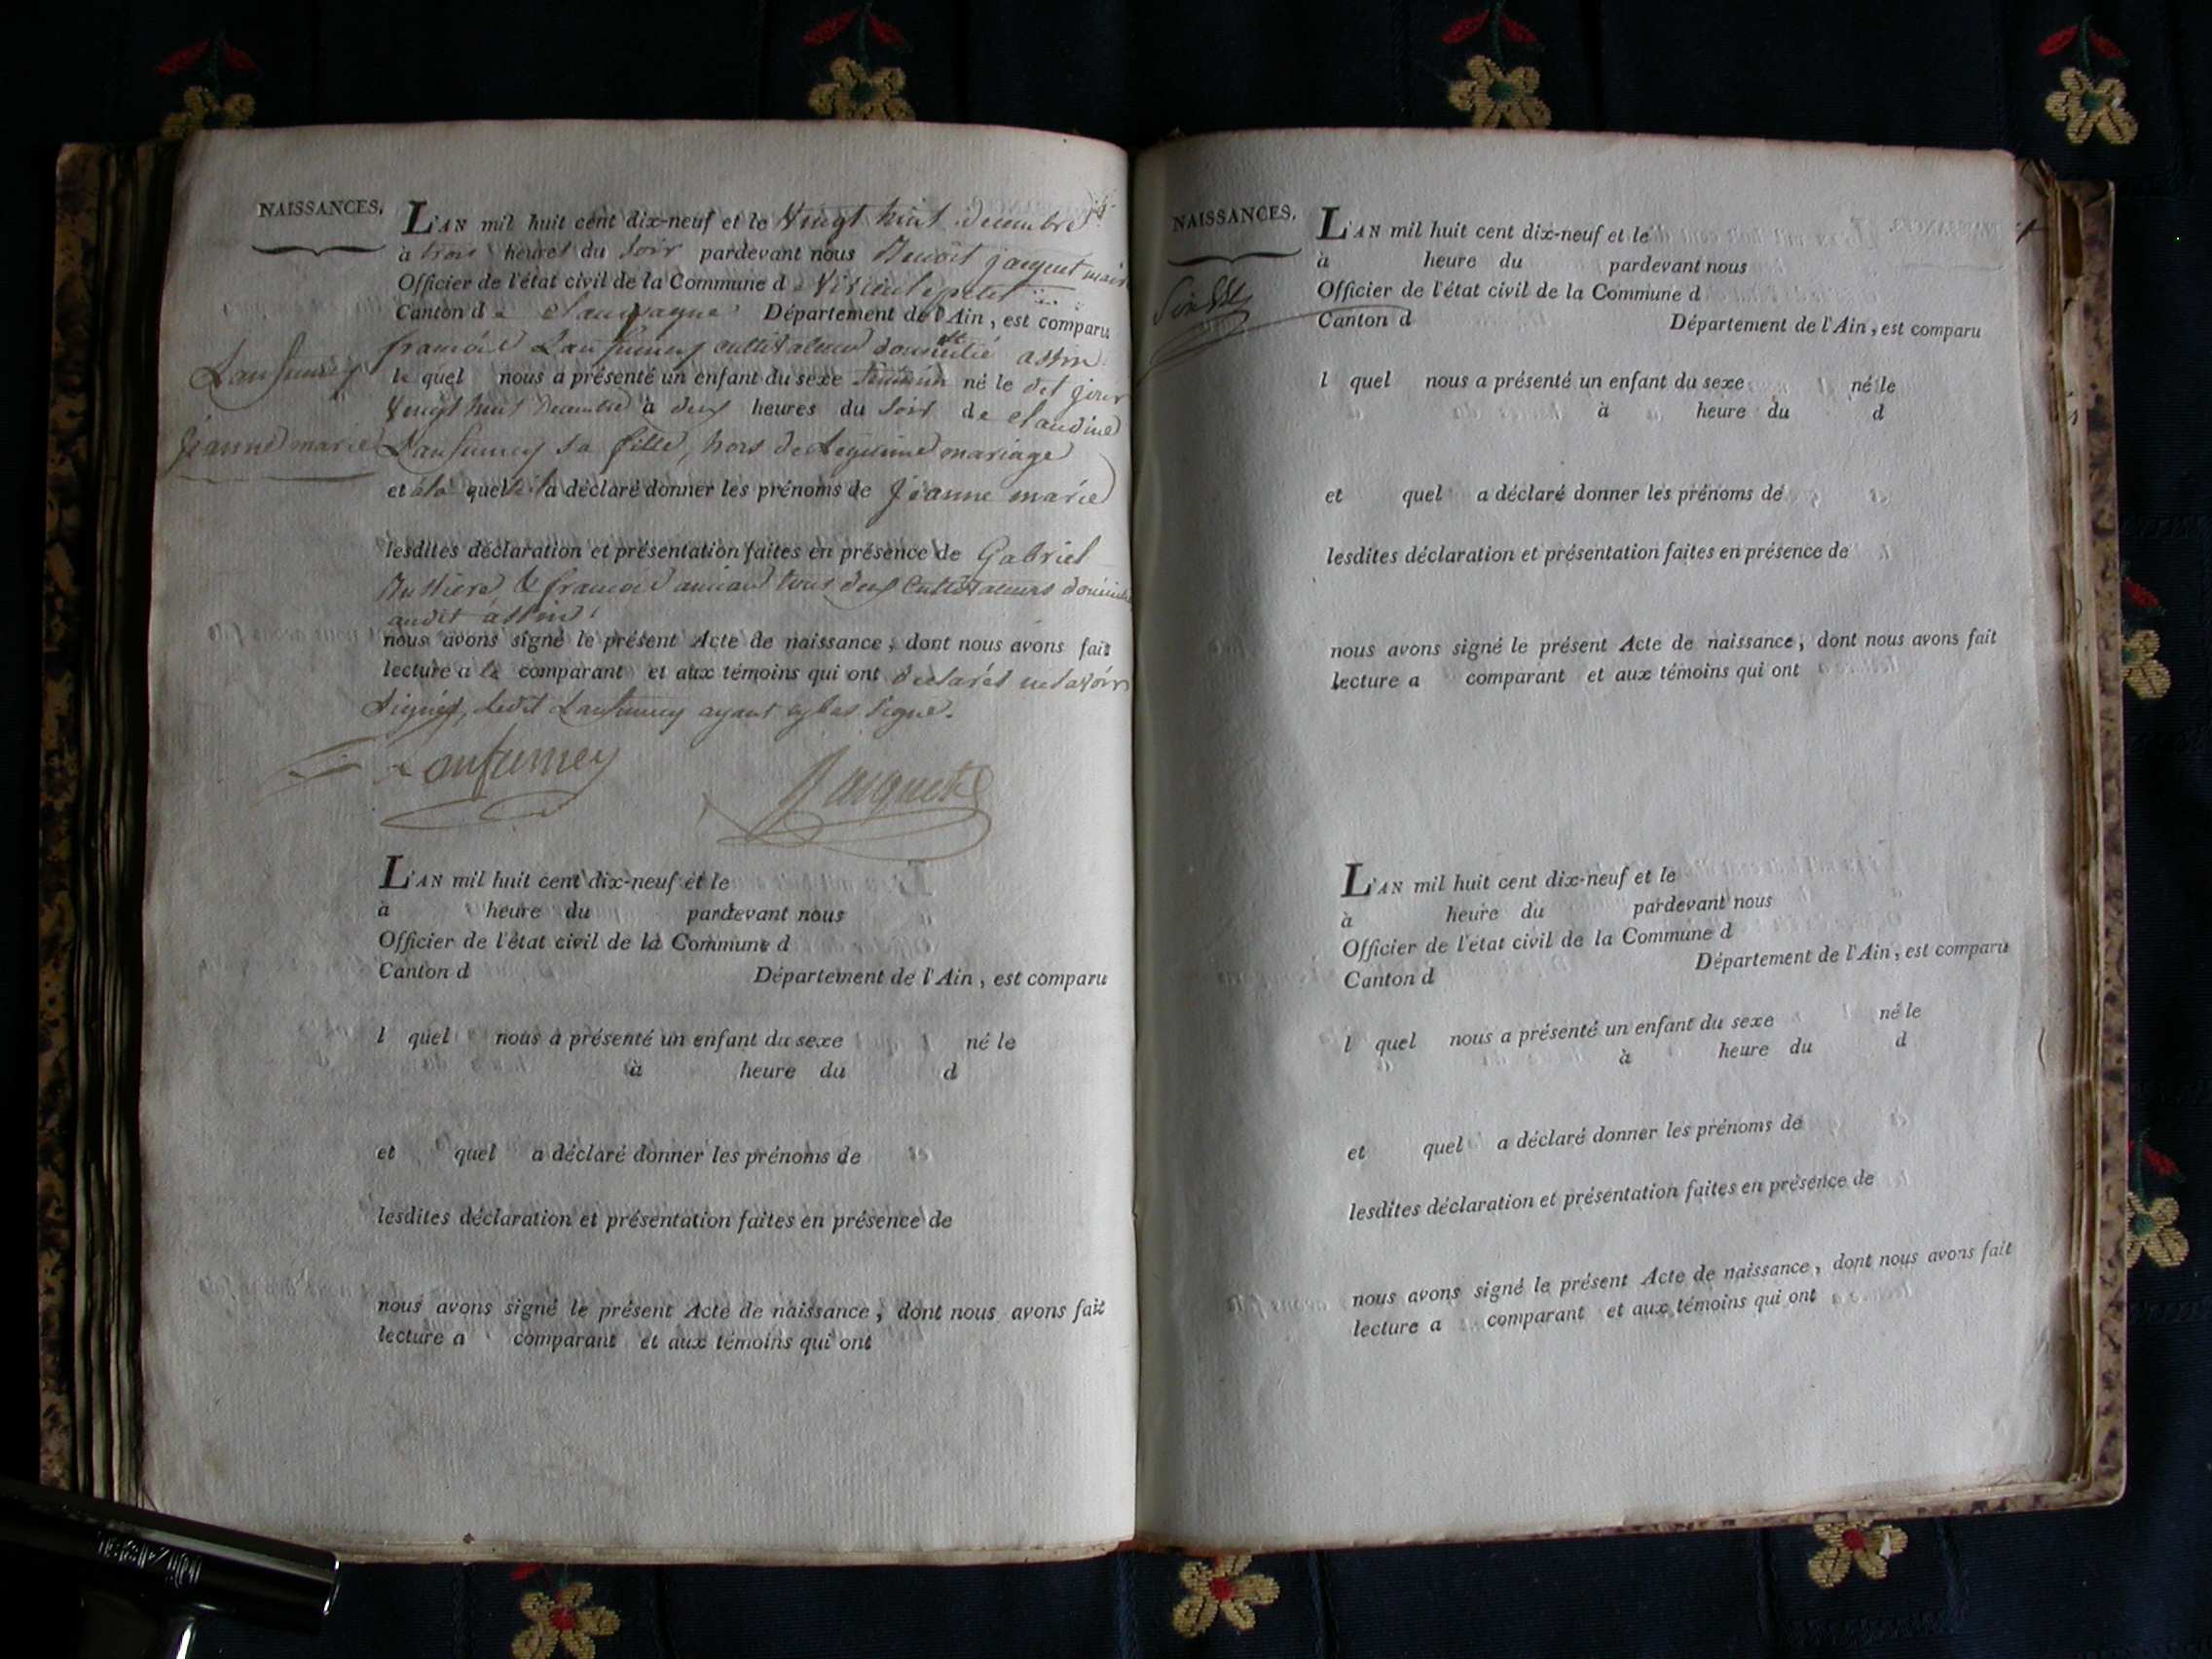 NAISSANCES.
L'AN mil huit cent dix-neuf et le Vingt huit decembre
à trois heures du Soir pardevant nous Benoit jacquet maire
Officier de l'état civil de la Commune d
Canton d Département de l'Ain, est comparu
francois Lanfumey cultivateur domicilié
Lanfumey
le quel nous a présenté un enfant du sexe feminin né le dit jour
Vingt huit Decembre à deux heures du Soir de claudine
jeanne marie
Lanfumey sa fille, hors de legitime mariage
et quel a déclaré donner les prénoms de jeanne marie
lesdites déclaration et présentation faites en présence de Gabriel
& francois tous deux Cultivateurs
audit
nous avons signé le présent Acte de naissance, dont nous avons fait
lecture a le comparant et aux témoins qui ont declarés
Signer, ledit Lanfumey ayant signé.
Lanfumey
Jacquet
L'AN mil huit cent dix-neuf et le
à heure du pardevant nous
Officier de l'état civil de la Commune d
Canton d Département de l'Ain, est comparu
l quel nous a présenté un enfant du sexe né le
à heure du d
et quel a déclaré donner les prénoms de
lesdites déclaration et présentation faites en présence de
nous avons signé le présent Acte de naissance, dont nous avons fait
lecture a comparant et aux témoins qui ont
NAISSANCES.
L'AN mil huit cent dix-neuf et le
à heure du pardevant nous
Officier de l'état civil de la Commune d
Canton d Département de l'Ain, est comparu
l quel nous a présenté un enfant du sexe né le
à heure du d
et quel a déclaré donner les prénoms de
lesdites déclaration et présentation faites en présence de
nous avons signé le présent Acte de naissance, dont nous avons fait
lecture a comparant et aux témoins qui ont
L'AN mil huit cent dix-neuf et le
à heure du pardevant nous
Officier de l'état civil de la Commune d
Canton d Département de l'Ain, est comparu
l quel nous a présenté un enfant du sexe né le
à heure du d
et quel a déclaré donner les prénoms de
lesdites déclaration et présentation faites en présence de
nous avons signé le présent Acte de naissance, dont nous avons fait
lecture a comparant et aux témoins qui ont